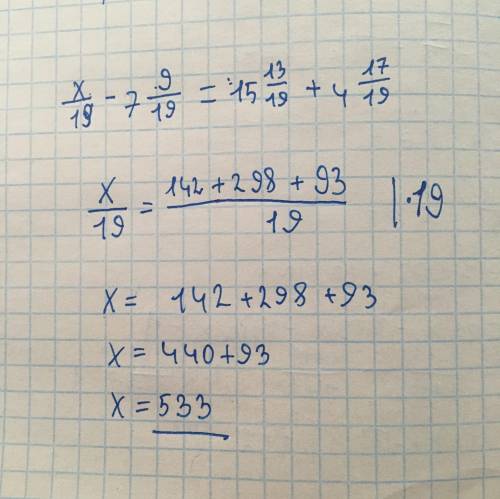 x/19 - 7 9/19 = 15 13/19 + 4 17/19
x/19 = 142 + 298 + 93/19 | · 19
x = 142 + 298 + 93
x = 440 + 93
x = 533